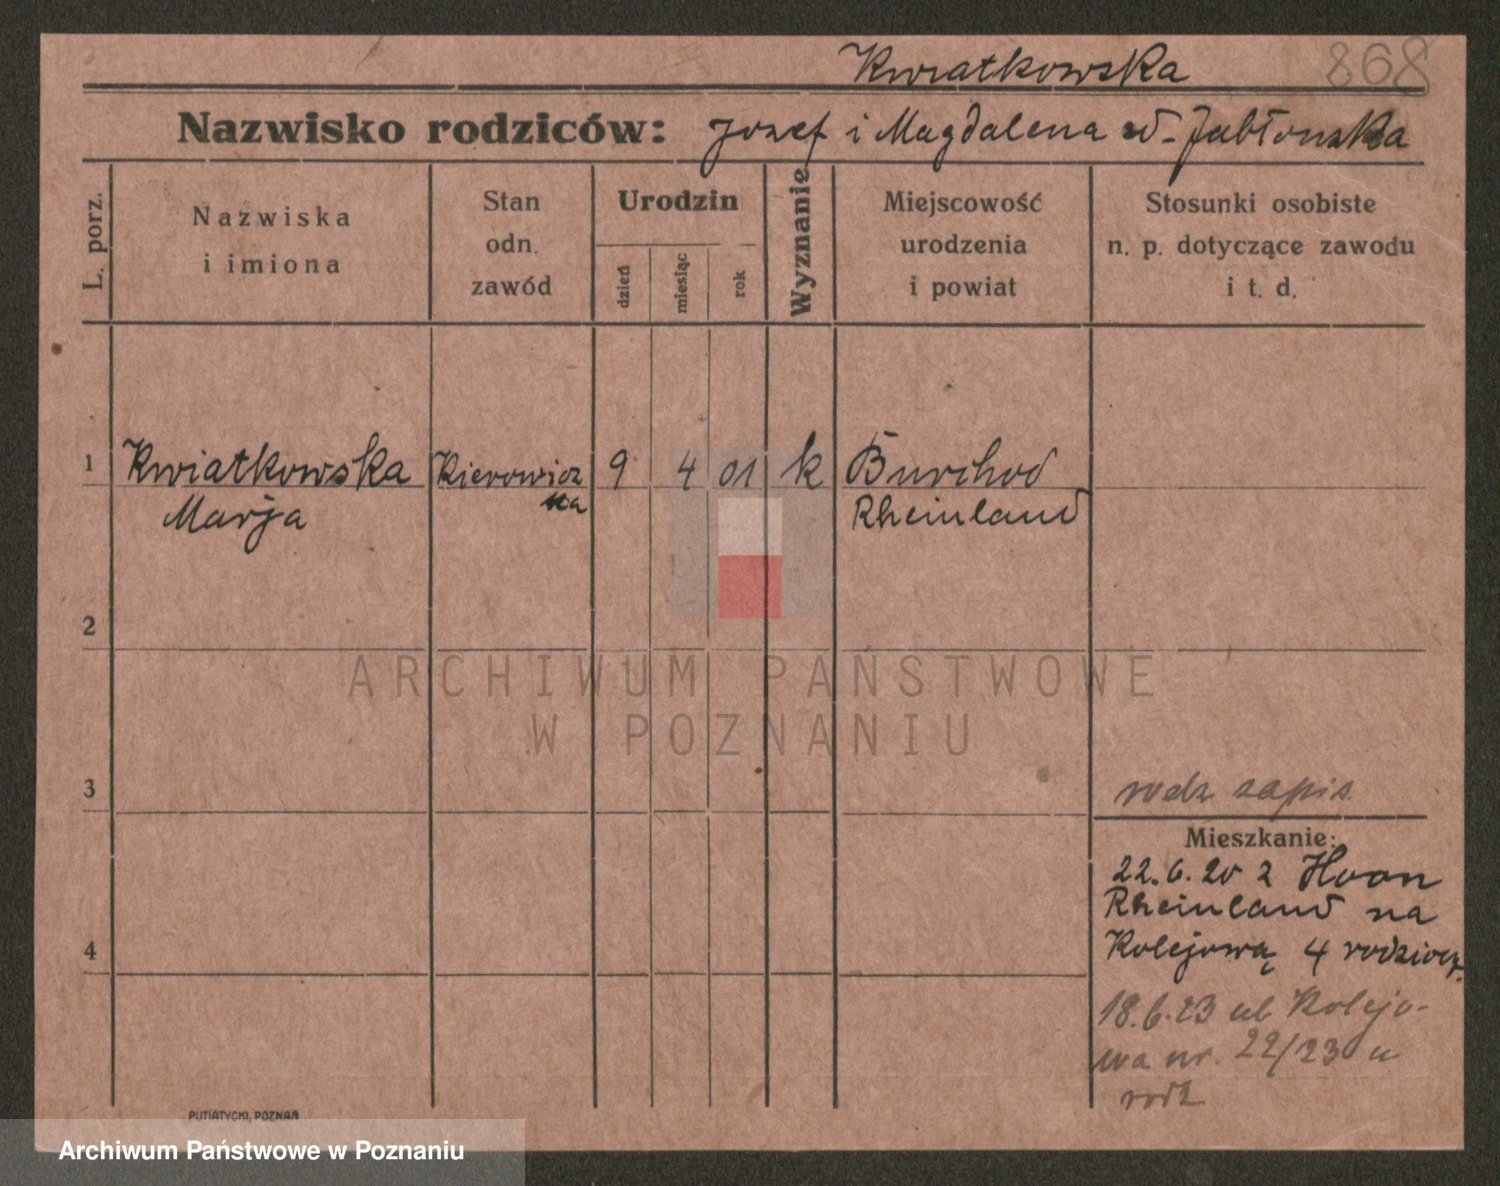 Kwiatkowska 868
Nazwisko rodziców: Jozef i Magdalena z d. Jabłonska
L. porz.
Nazwiska
i imiona
Stan
odn.
zawód
Urodzin
dzień
miesiąc
rok
Wyznanie
Miejscowość
urodzenia
i powiat
Stosunki osobiste
n. p. dotyczące zawodu
i t. d.
1 Kwiatkowska Kierowicz 9 4 01 k Burchod
Marja ka Rheinland
2
ARCHIWUM PAŃSTWOWE
W POZNANIU
3
rodz zapis
Mieszkanie:
22.6.20 z
Rheinland na
4
Kolejową 4 rodzicz.
18.6.23 ul Kolejo-
wa nr. 22/23 u
rodz
PUTIATYCKI, POZNAŃ
Archiwum Państwowe w Poznaniu